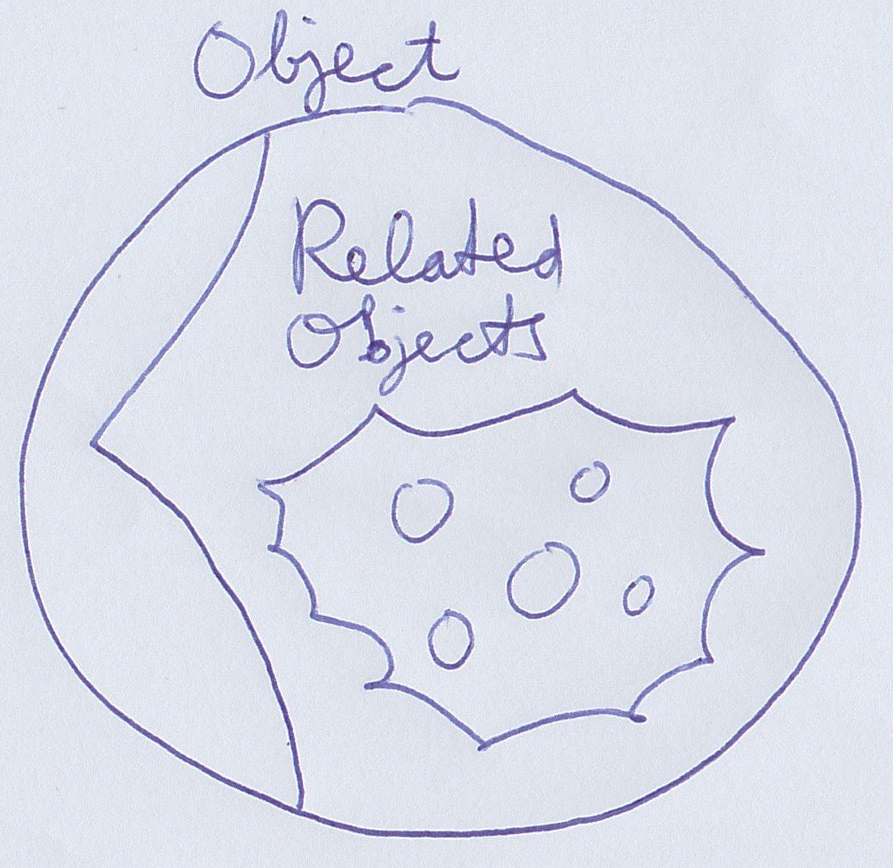 Object
Related
Objects